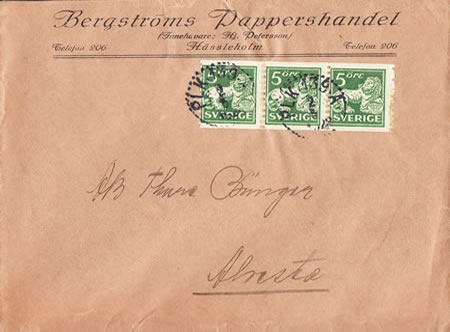 Bergströms Pappershandel
(Innehavare: Hj. Petersson)
Telefon 206 Hässleholm Telefon 206
5 ÖRE 5 ÖRE 5 ÖRE
SVERIGE SVERIGE SVERIGE
AB Thure Bünger
Alvesta